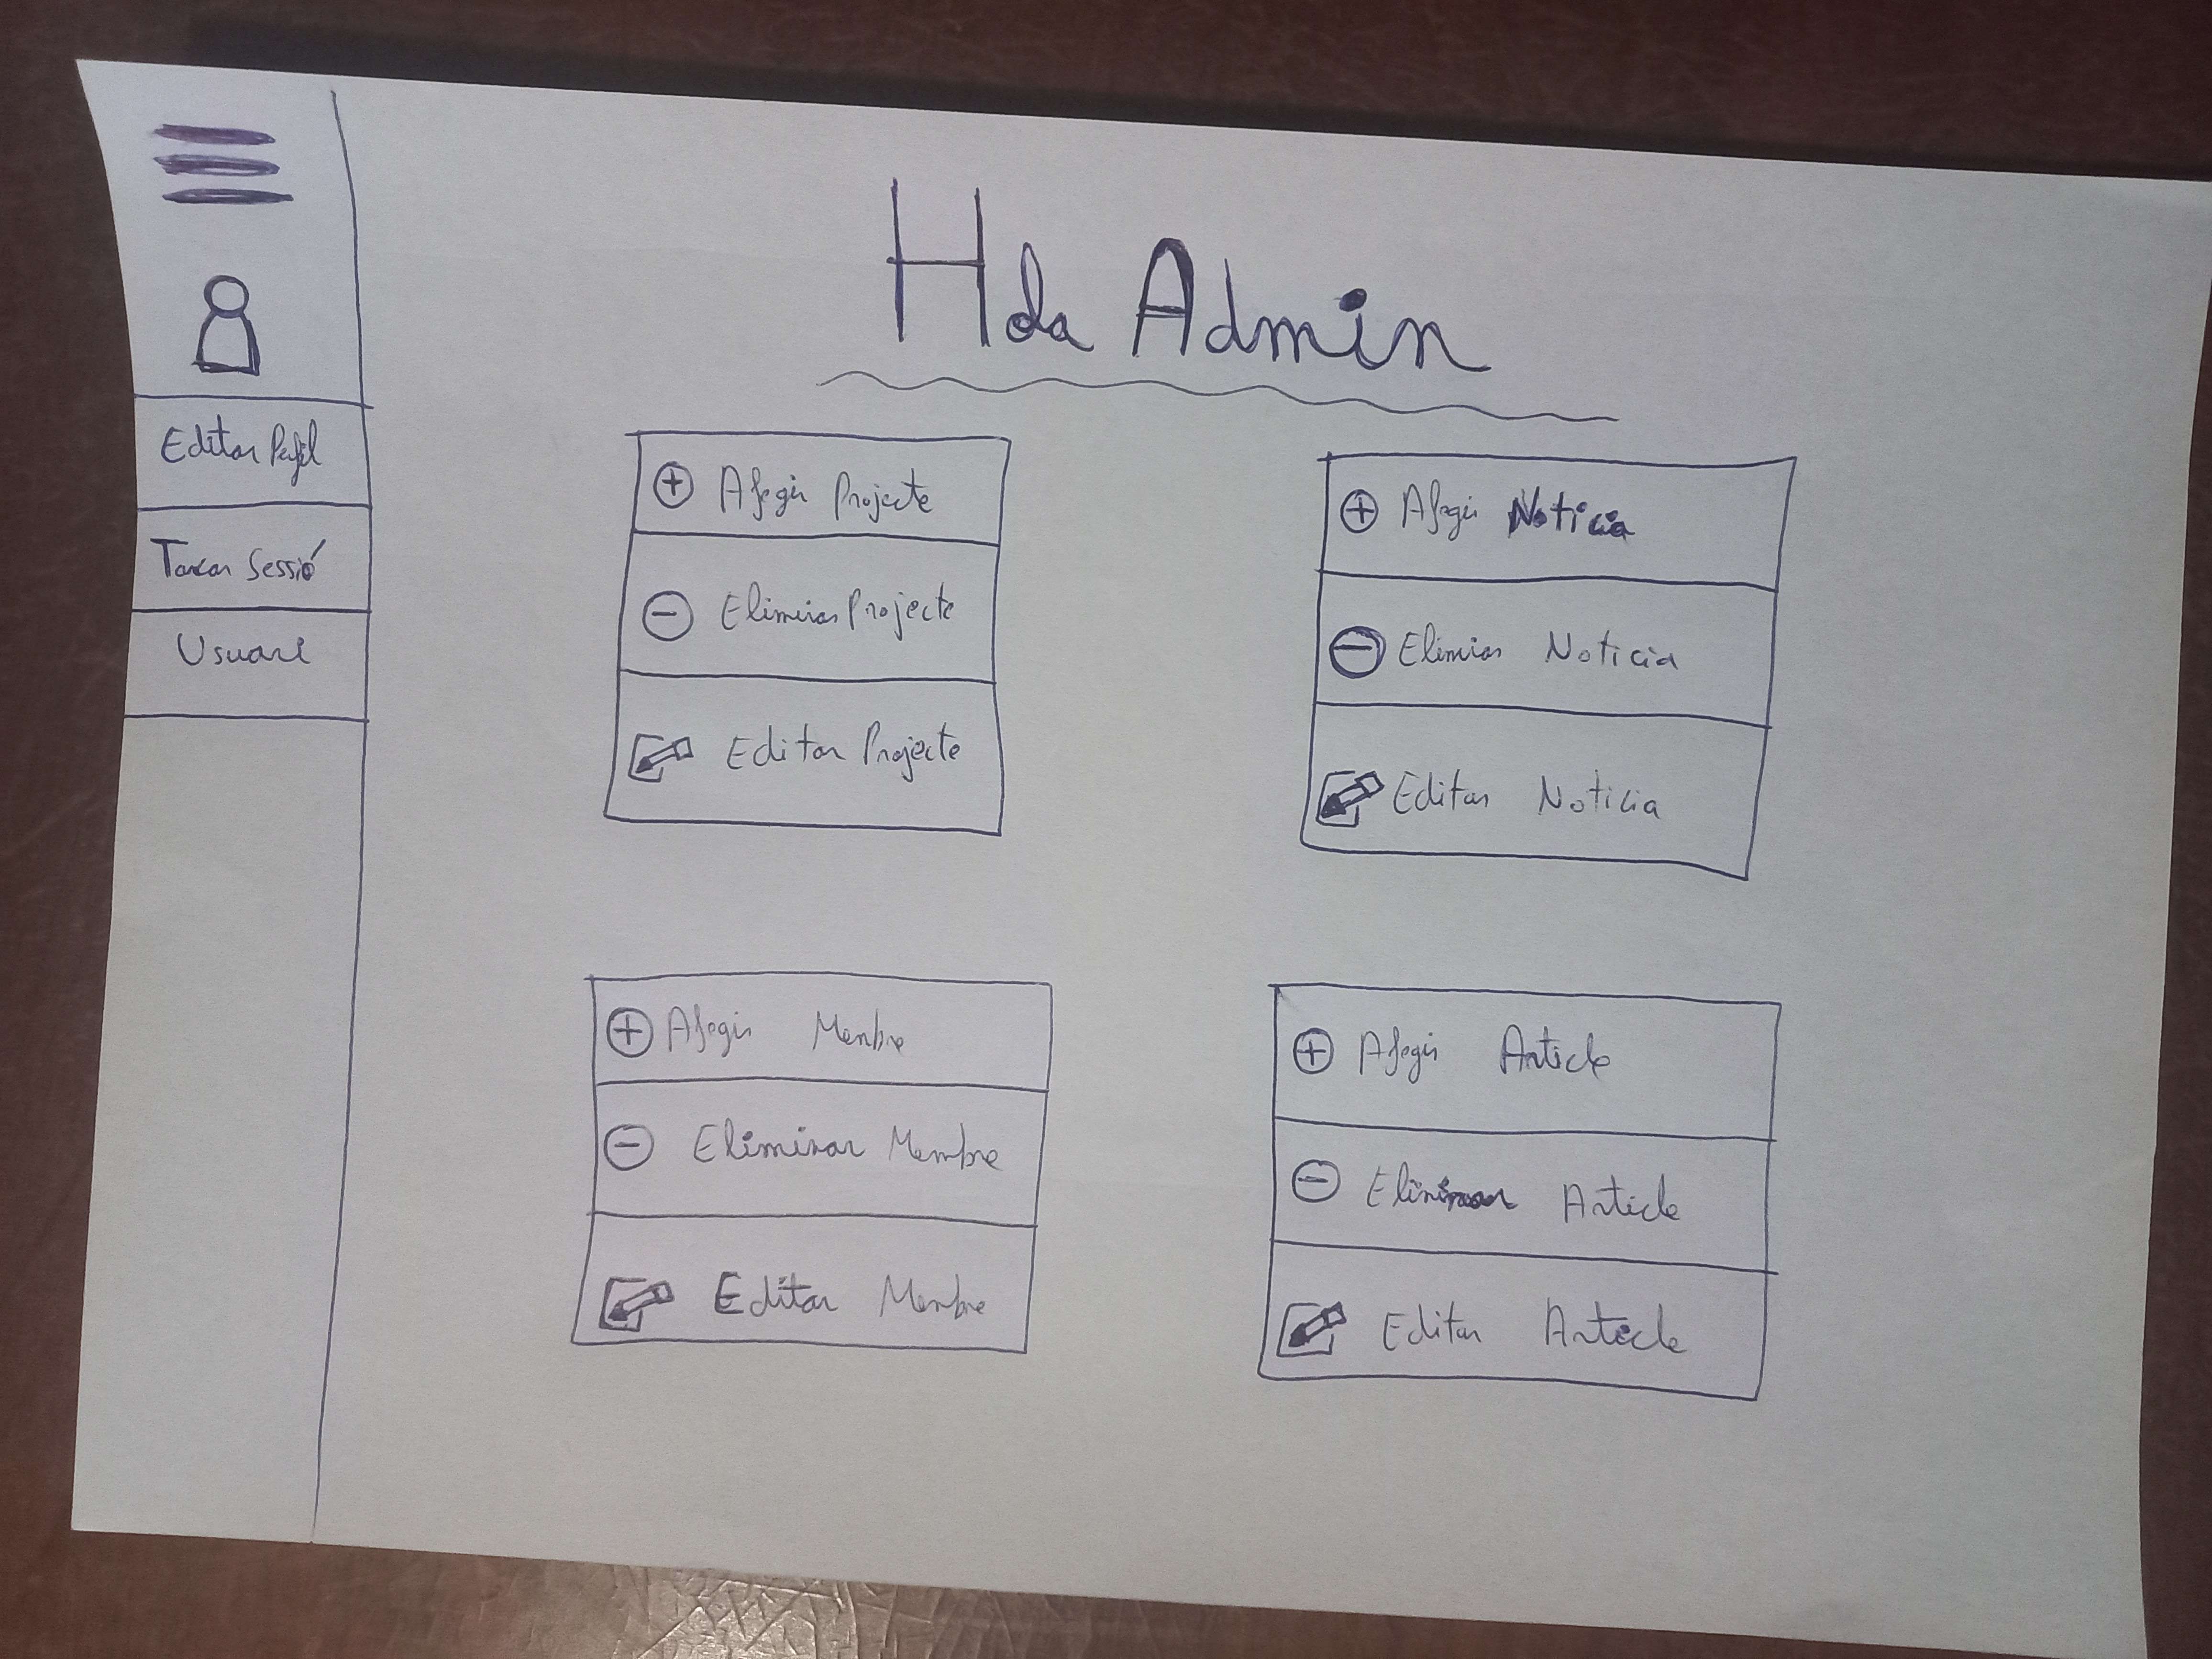 Hola Admin
Editar Perfil
Tancar Sessió
Usuari
Afegir Projecte
Eliminar Projecte
Editar Projecte
Afegir Noticia
Eliminar Noticia
Editar Noticia
Afegir Membre
Eliminar Membre
Editar Membre
Afegir Article
Eliminar Article
Editar Article